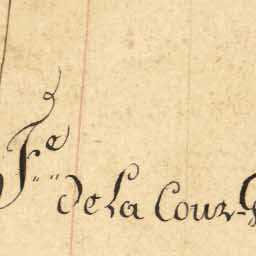 F.e de La Cour-